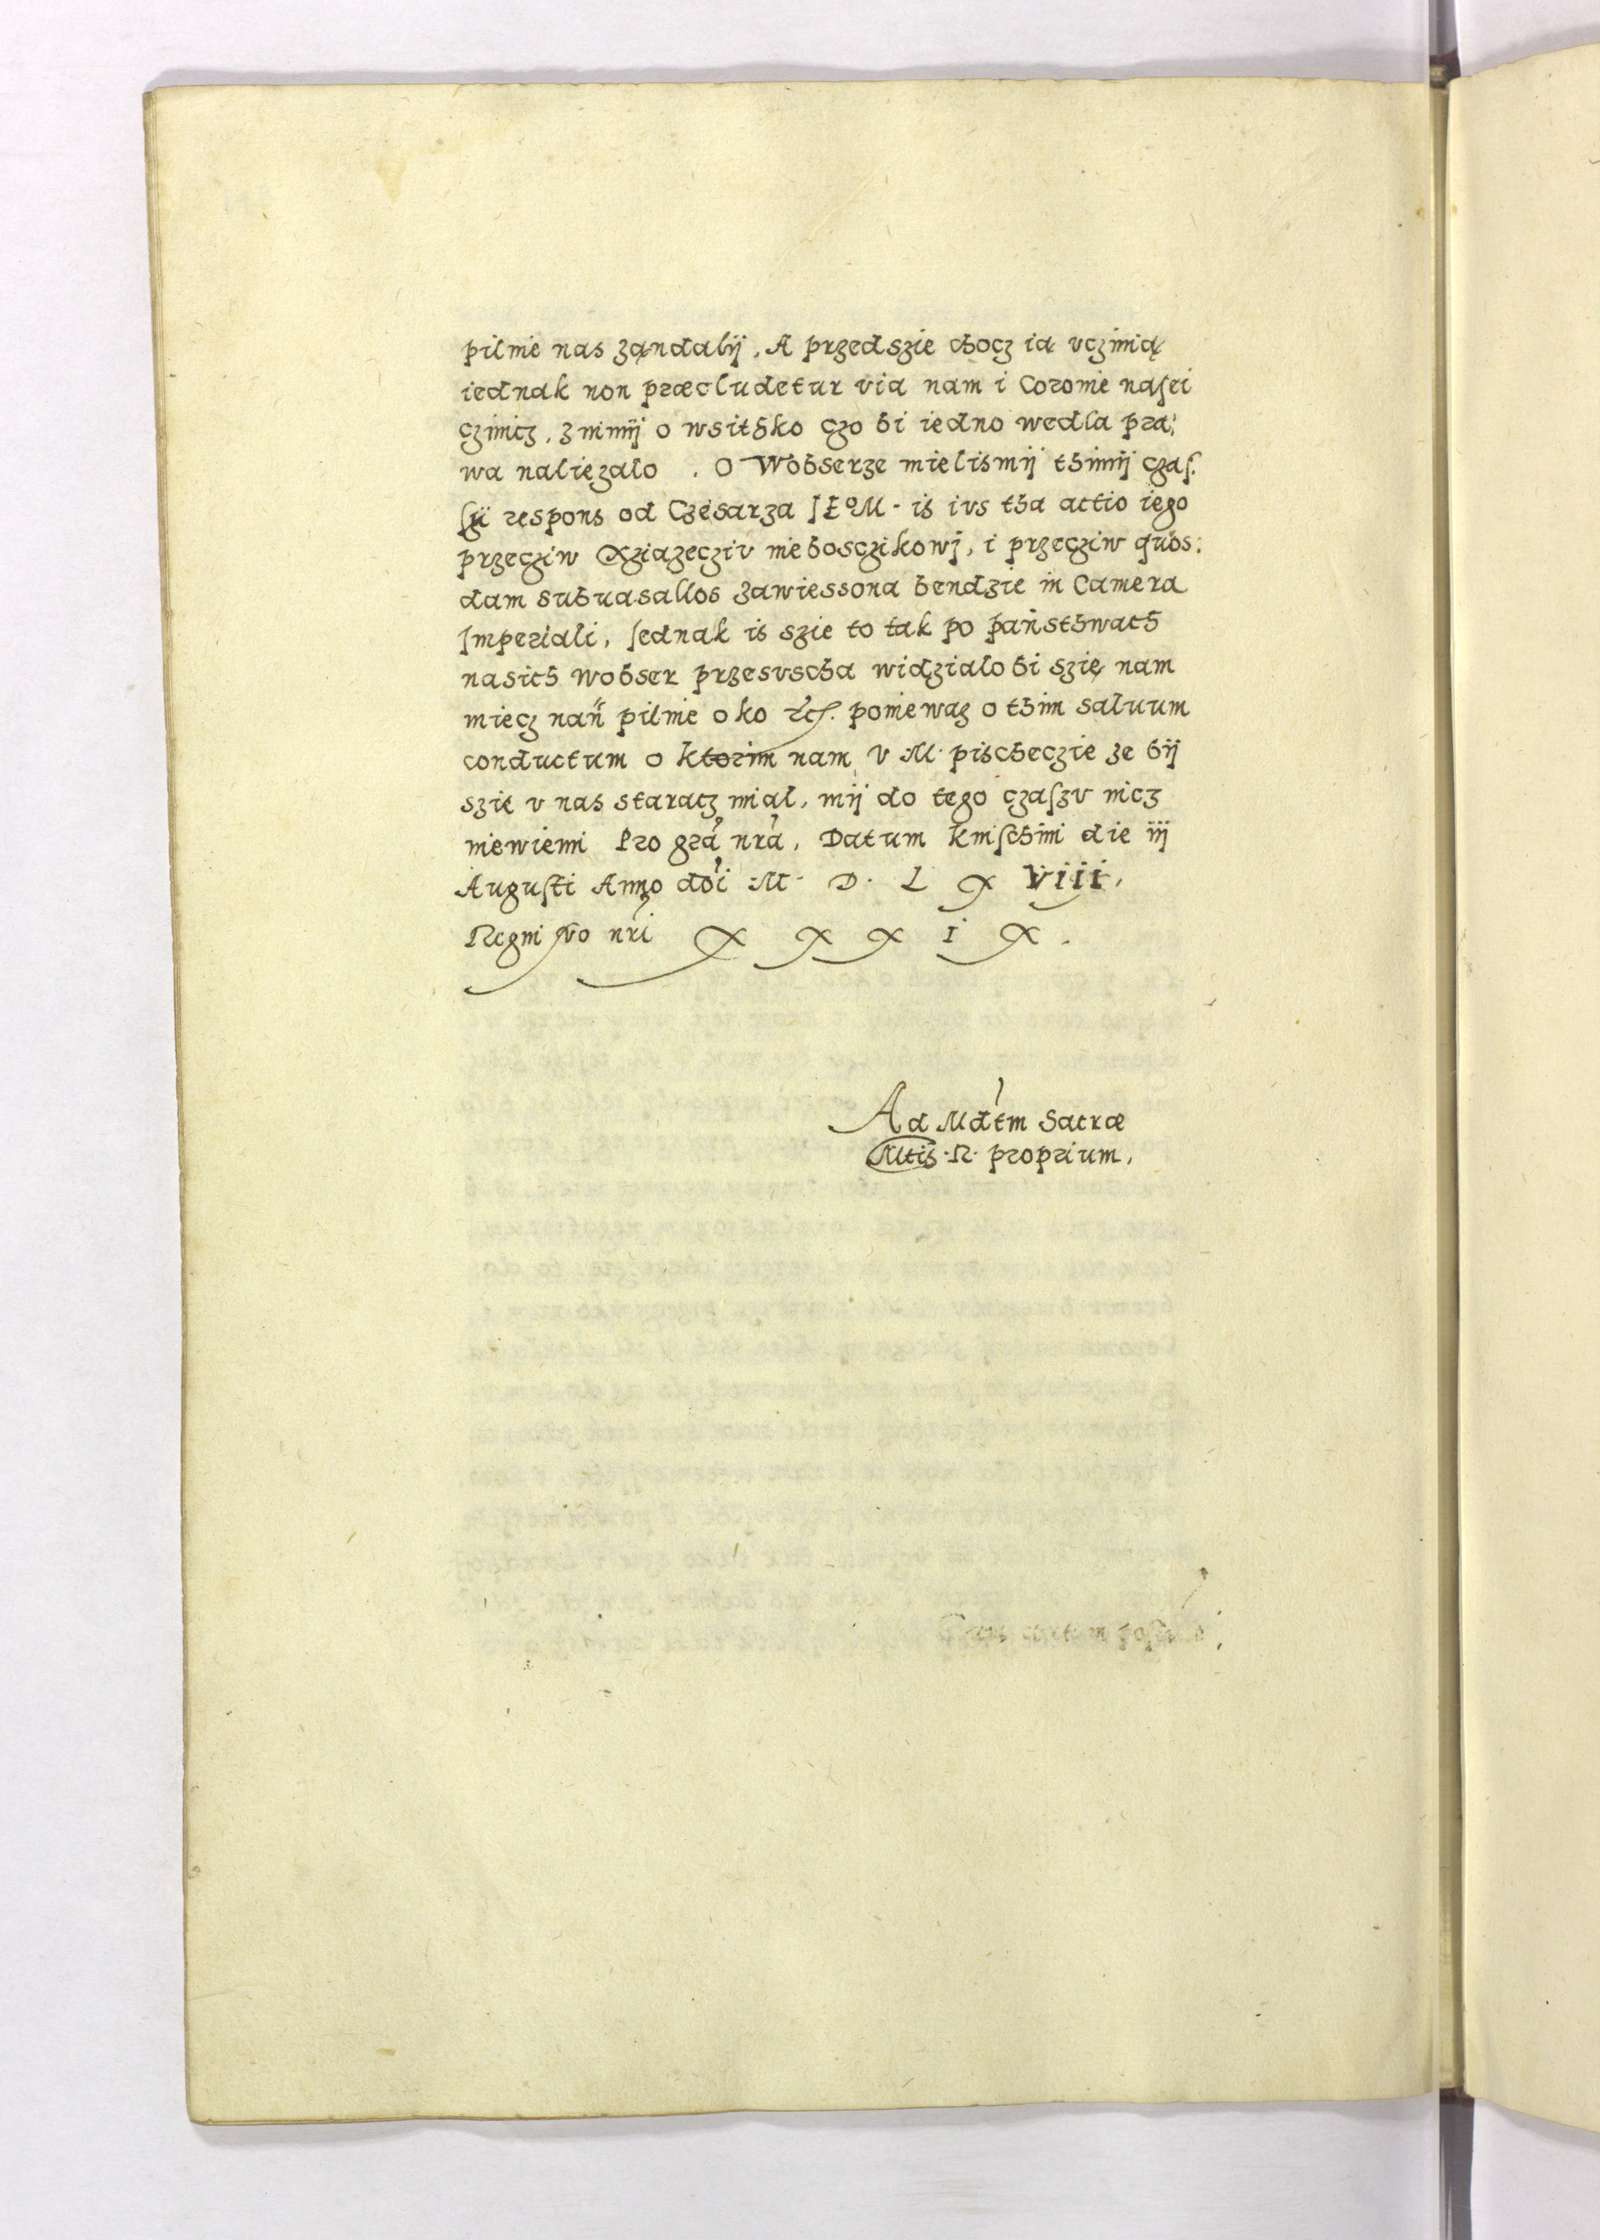 pilnie nas ządalÿ, A przedszie chocz ią vczinią
iednak non præcludetur via nam i Coronie naſzei
czinicz, z nimÿ o wsithko czo bi iedno wedla pra:
wa należalo . O Wobserze mielismÿ thimÿ czaſ:
ſÿ respons od Czesarza JEoM · is ivs tha actio iego
przecziw Xziazecziv nieboszczikowj, i przecziw quos:
dam subuasallos zawiessona bendzie in Camera
Imperiali, Jednak is szie to tak po państhwach
nasich Wobser przesvscha widzialo bi szię nam
miecz nań pilnie oko etc. poniewaz o thim saluum
conductum o ktorim nam V · M · pischeczie ze bÿ
szie v nas staracz mial, mÿ do tego czaſzv nicz
niewiemi Pro gra nra, Datum Kniſchini die iij
Auguſti Anno doi · M · D · L X viii,
Regni vo nri X X X I X .
Ad Mdtm Sacræ
Mtis · R · proprium,